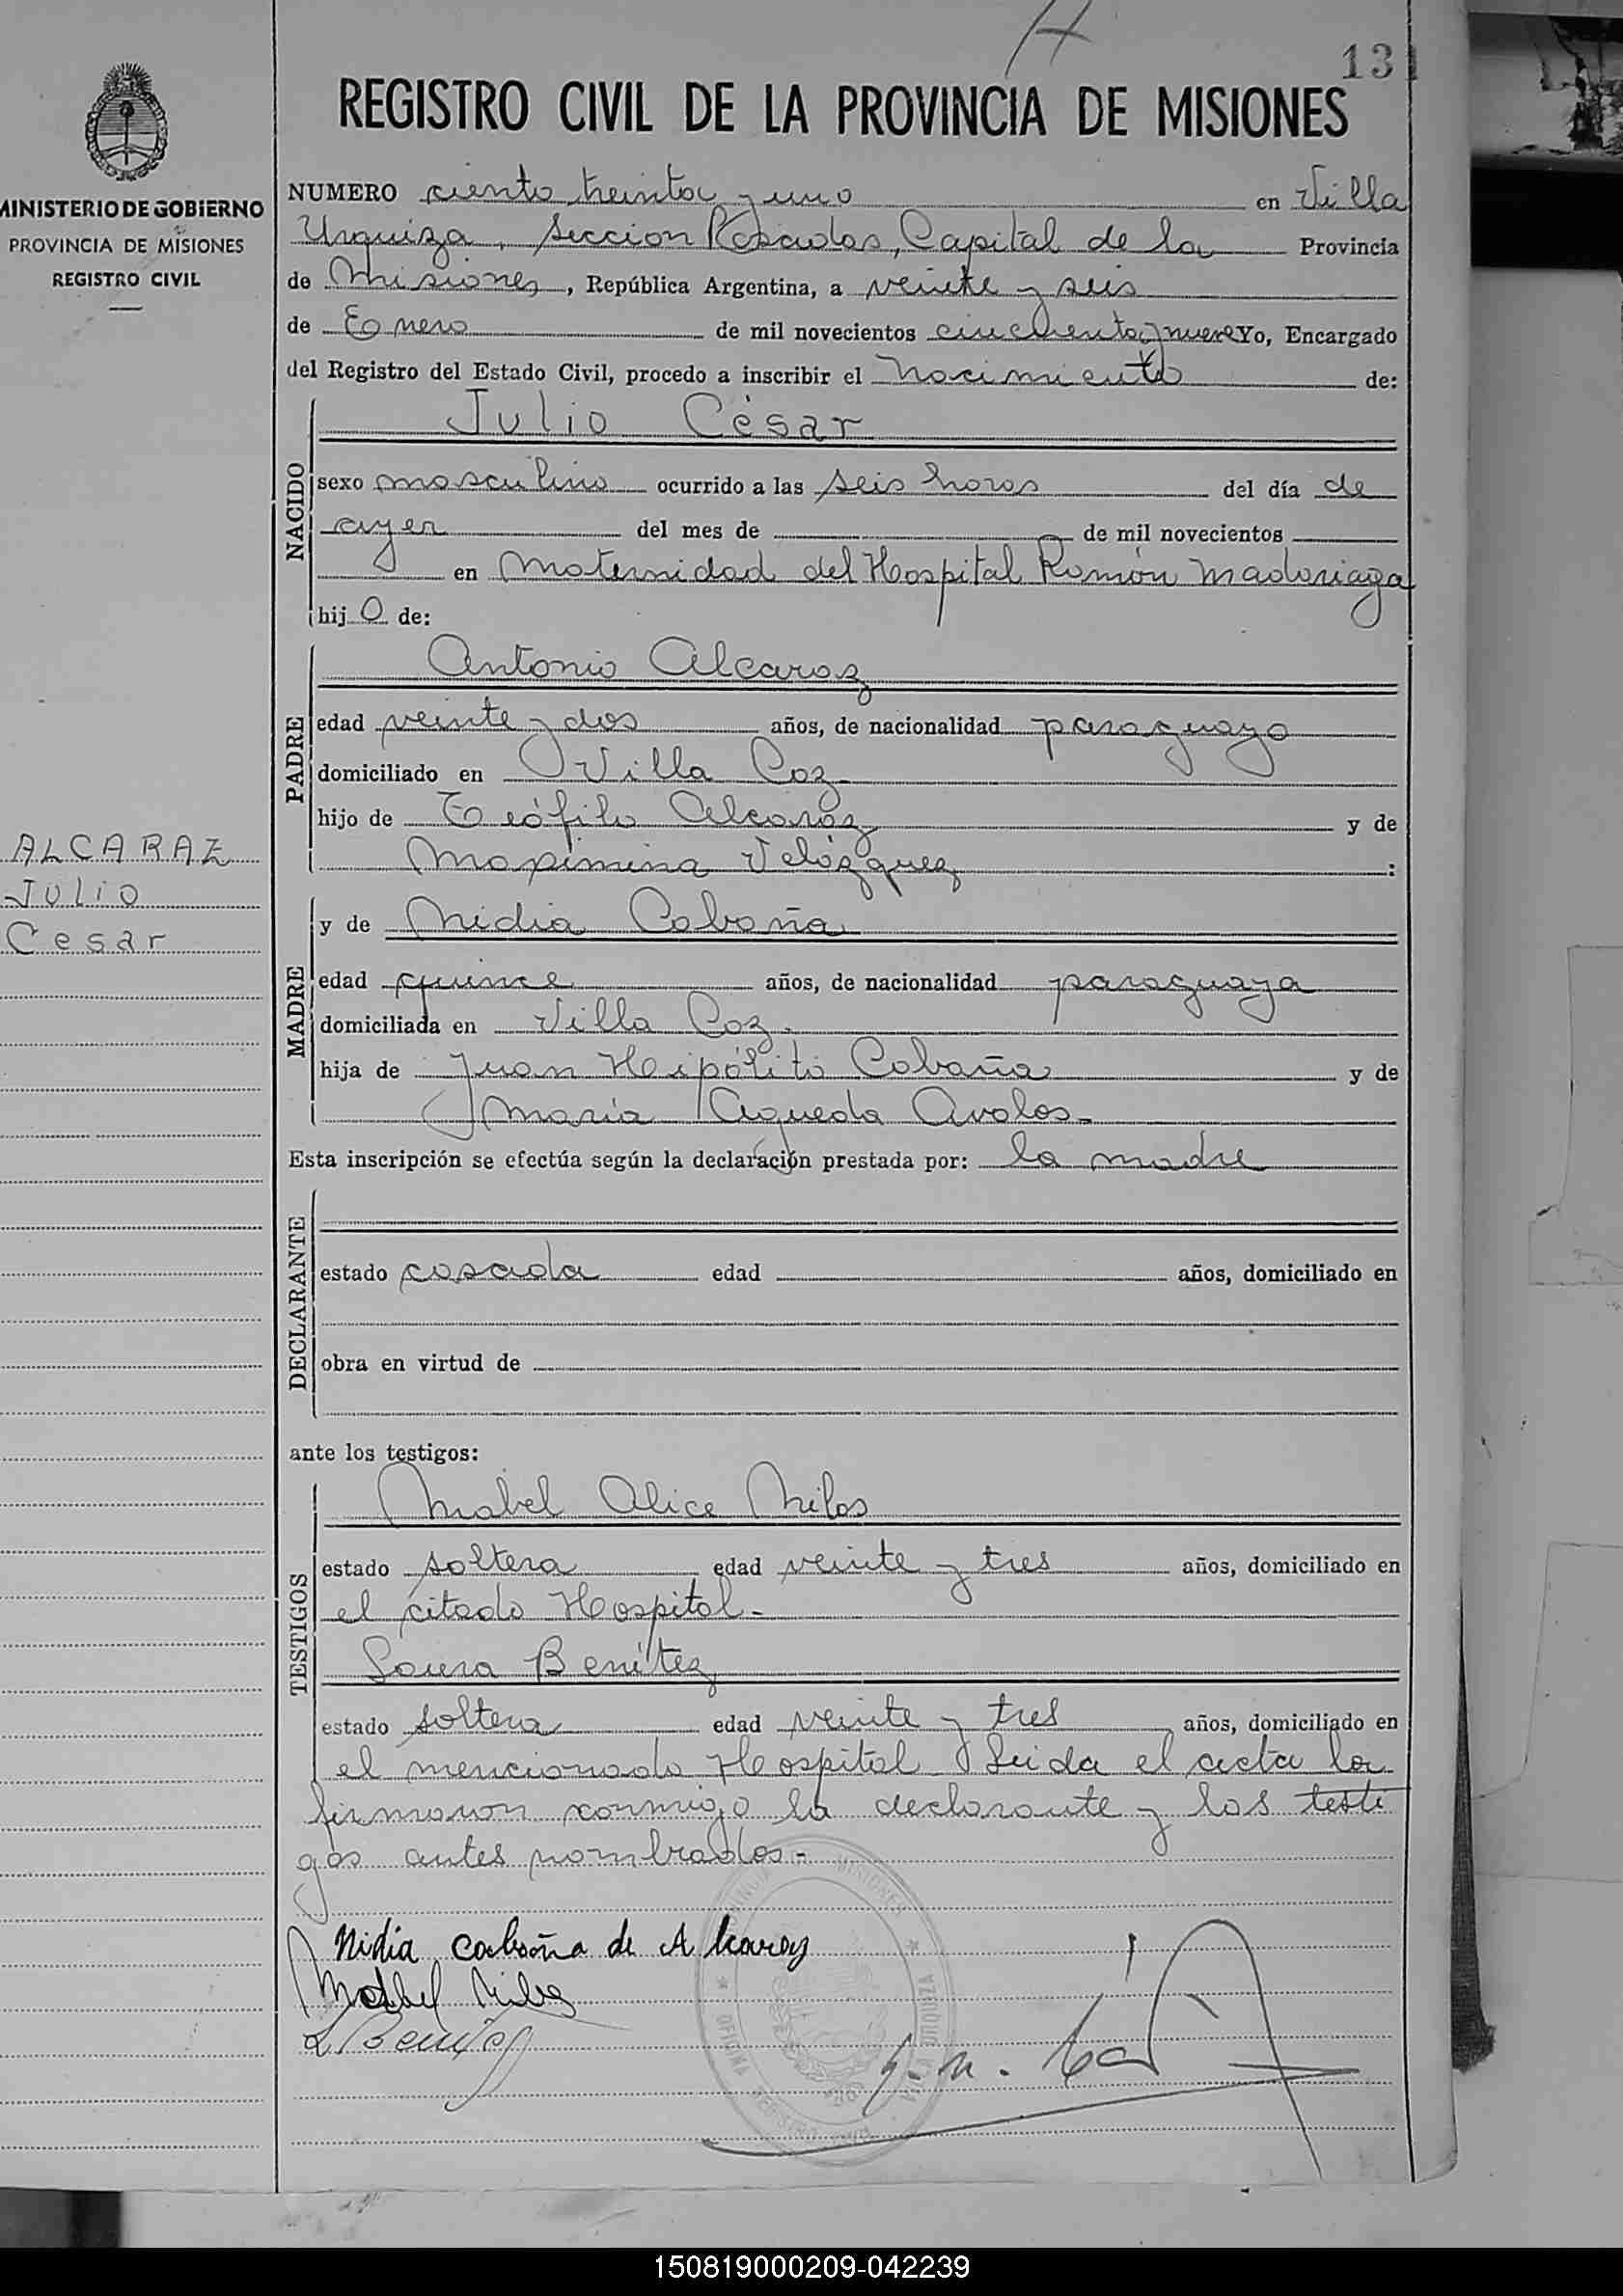 H
131
REGISTRO CIVIL DE LA PROVINCIA DE MISIONES
MINISTERIO DE GOBIERNO
PROVINCIA DE MISIONES
REGISTRO CIVIL
NUMERO ciento treinta y uno en Villa
Urquiza, Sección Posadas, Capital de la Provincia
de Misiones, República Argentina, a veinte y seis
de Enero de mil novecientos cincuenta y nueve Yo, Encargado
del Registro del Estado Civil, procedo a inscribir el nacimiento de:
NACIDO
Julio César
sexo masculino ocurrido a las seis horas del día de
ayer del mes de de mil novecientos
en Maternidad del Hospital Ramón Madariaga
hij o de:
PADRE
Antonio Alcaraz
edad veinte y dos años, de nacionalidad paraguayo
domiciliado en Villa Coz
hijo de Teófilo Alcaráz y de
Maximina Velázquez :
ALCARAZ
JULIO
Cesar
MADRE
y de Nidia Cabaña
edad quince años, de nacionalidad paraguaya
domiciliada en Villa Coz.
hija de Juan Heipólito Cabaña y de
María Agueda Avalos.-
Esta inscripción se efectúa según la declaración prestada por: la madre
DECLARANTE
estado casada edad años, domiciliado en
obra en virtud de
ante los testigos:
TESTIGOS
Mabel Alice Milos
estado soltera edad veinte y tres años, domiciliado en
el citado Hospital.-
Laura Benítez
estado soltera edad veinte y tres años, domiciliado en
el mencionado Hospital Leida el acta la
firmaron conmigo la declarante y los testi
gos antes nombrados.-
Nidia Cabaña de Alcaraz
Mabel Milos
L Benitez
MISIONES
OFICINA
URQUIZA
150819000209-042239